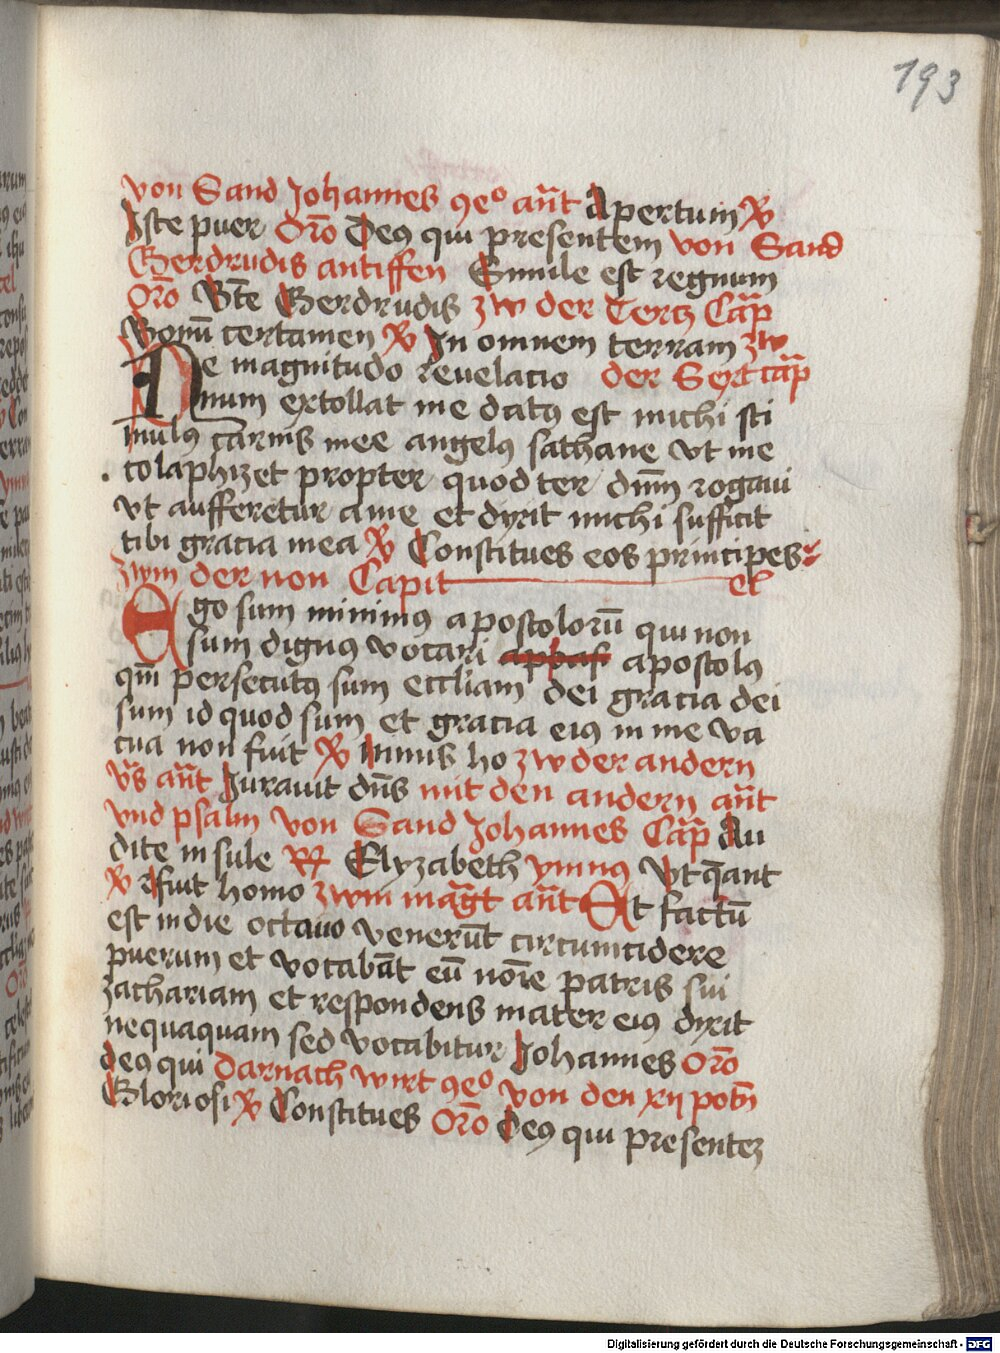 193
von Sand Johannes ꝯeº an̄t Apertum ℟
Iste puer Or̄o Deꝰ qui presentem von Sand
Gerdrudis antiffen Simile est regnum
Or̄o Bt̄e Gerdrudis zw der Tertz Cap̄
Bonū certamen ℟ In omnem terram zw
Ne magnitudo reuelacio der Sext cap̄
num extollat me datꝰ est michi sti
mulꝰ carnis mee angelꝰ sathane vt me
colaphizet propter quod ter dn̄m rogaui
vt aufferetur a me et dixit michi sufficit
tibi gracia mea ℟ Constitues eos principes
zwm der non Capit el
Ego sum minimꝰ apostolorū qui non
sum dignꝰ vocari apostolꝰ
qm̄ persecutꝰ sum eccliam dei gracia dei
sum id quod sum et gracia eiꝰ in me va
cua non fuit ℟ Nimis ho zw der andern
vs̄ an̄t Jurauit dn̄s mit den andern an̄t
vnd psalm von Sand Johannes Cap̄ Au
dite insule Elyzabeth ymnꝰ Vt q̄ant
℟ fuit homo zwm mag̅t an̄t Et factū
est in die octauo venerūt circumcidere
puerum et vocabāt eū nōie patris sui
zachariam et respondens mater eiꝰ dixit
nequaquam sed vocabitur Johannes Or̄o
deꝰ qui Darnach wirt ꝯeº von den xij potn̄
Gloriosi ℟ Constitues Or̄o Deꝰ qui presentez
Digitalisierung gefördert durch die Deutsche Forschungsgemeinschaft - DFG